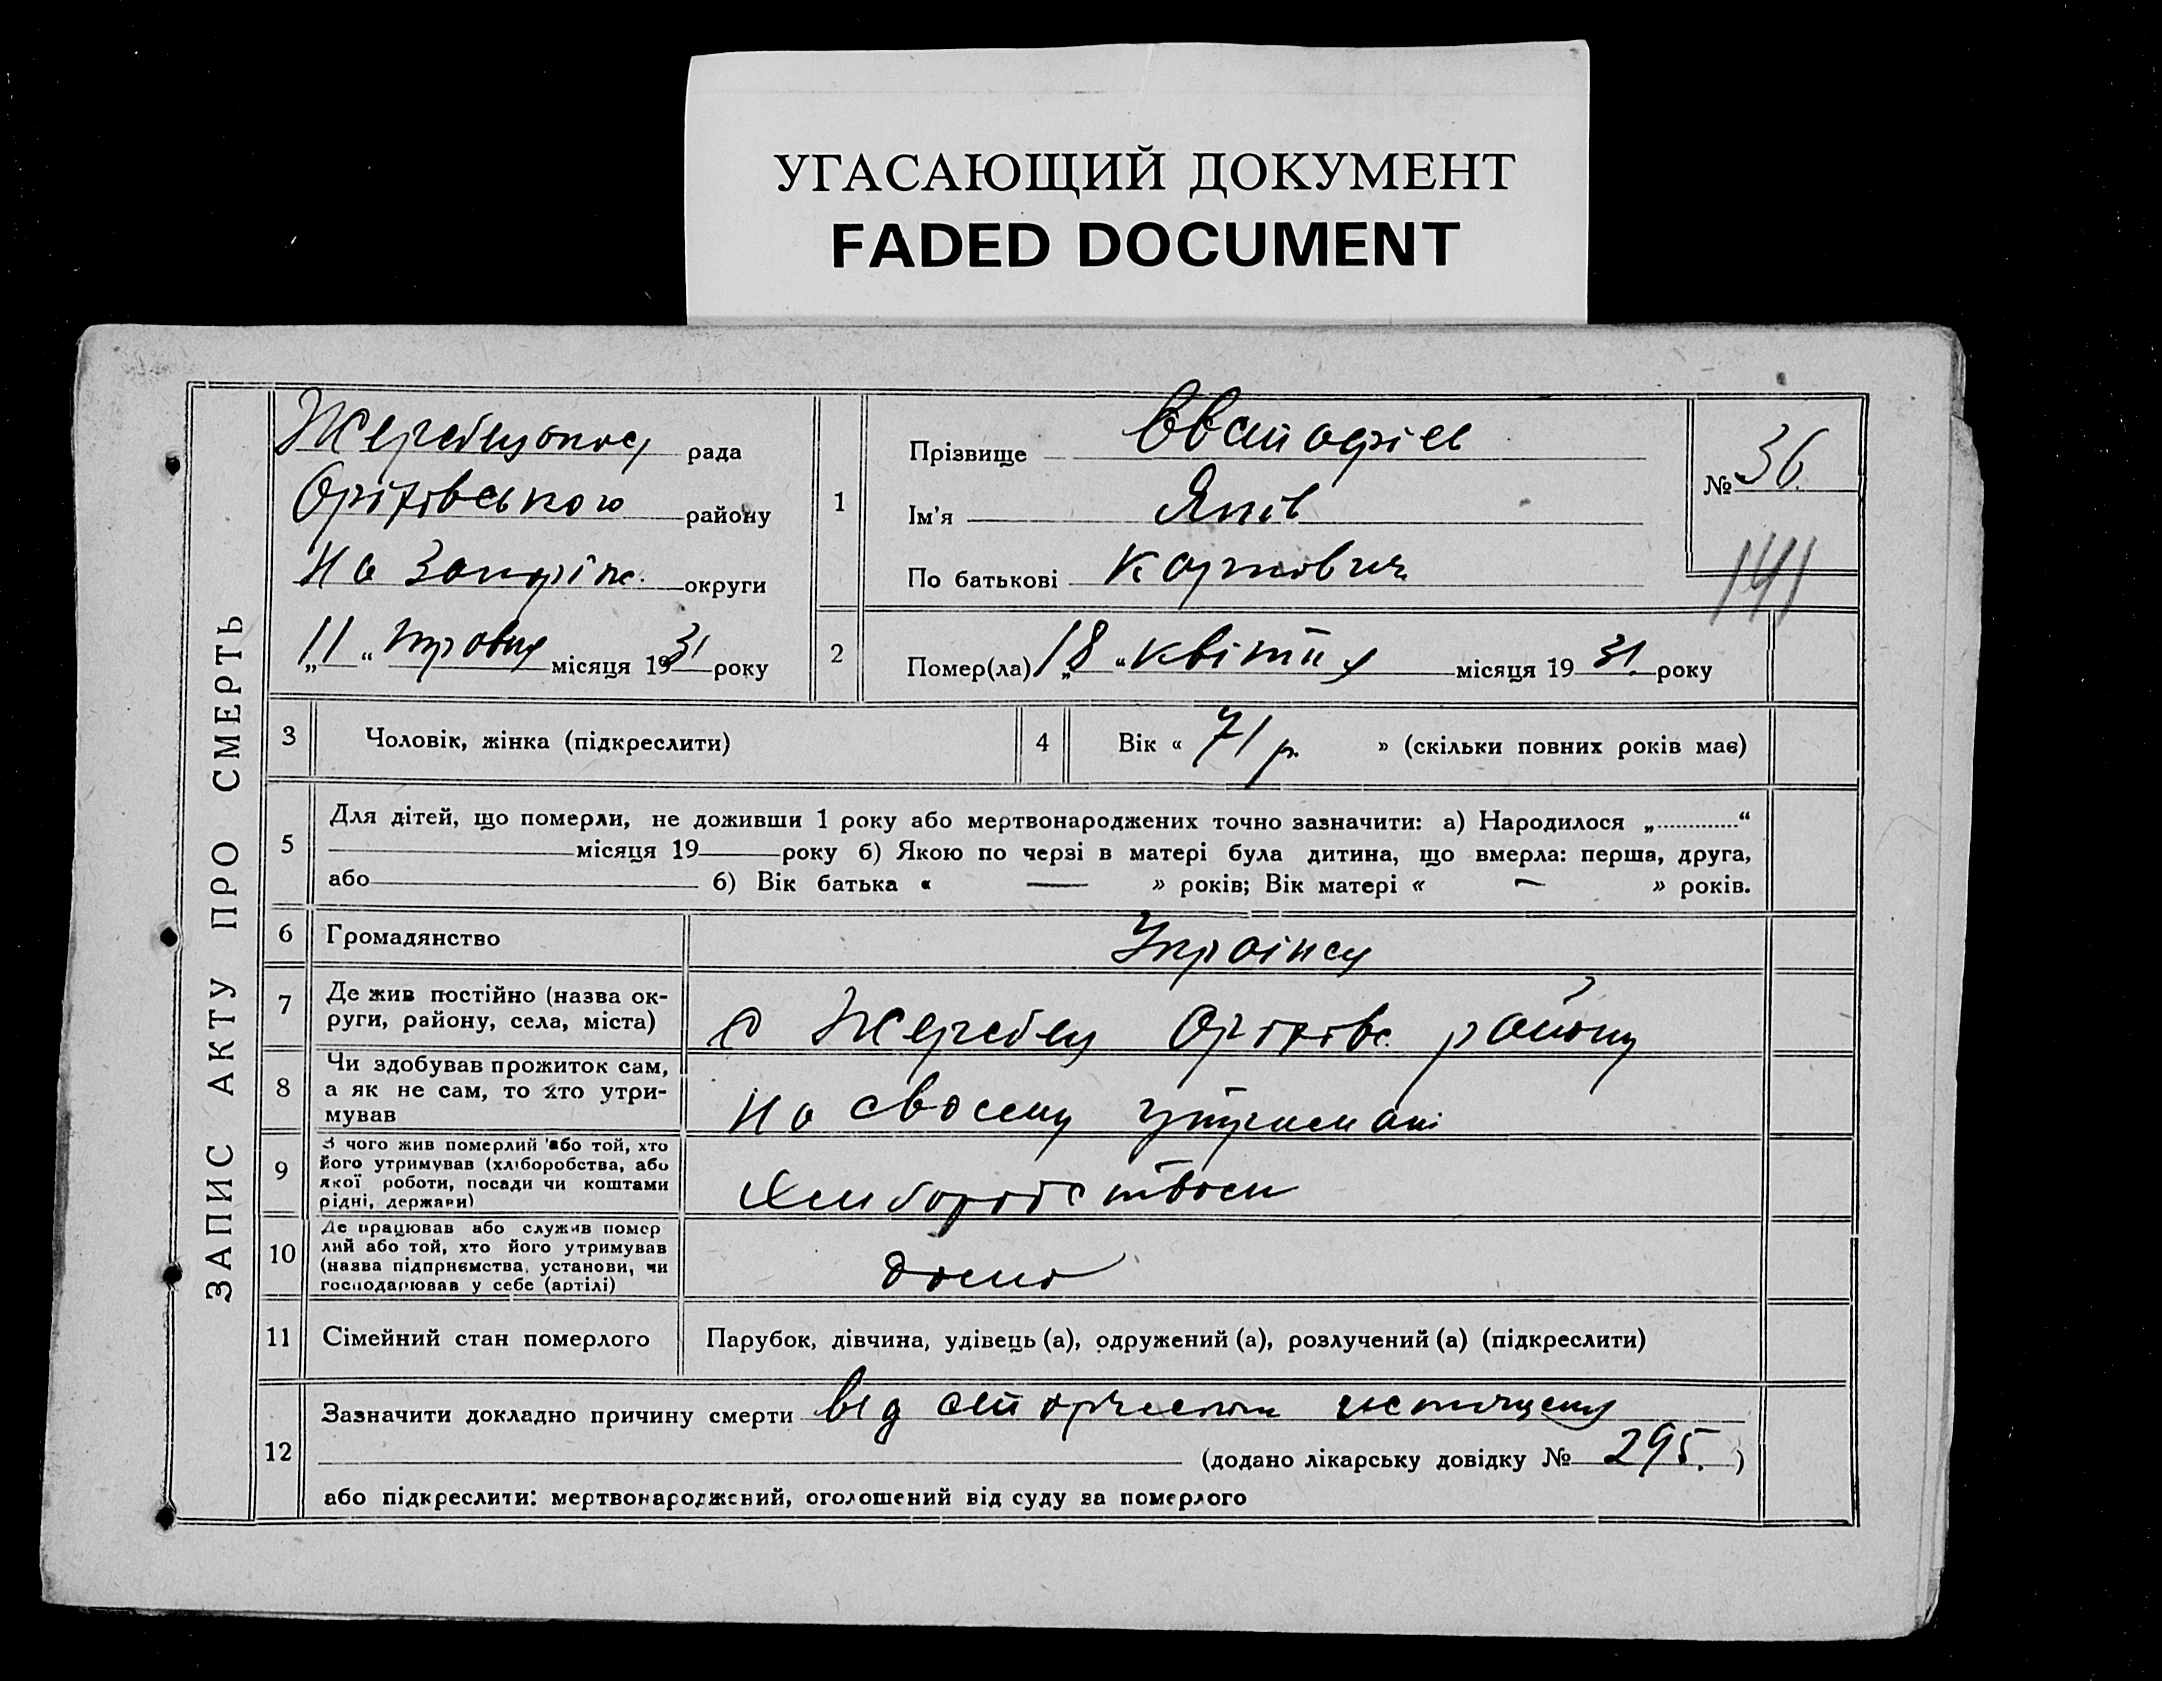 УГАСАЮЩИЙ ДОКУМЕНТ
FADED DOCUMENT
ЗАПИС АКТУ ПРО СМЕРТЬ
рада
Оріхівського району
На Запоріж. округи
„11“ травня місяця 1931 року
1
Прізвище
Ім'я Яків
По батькові Карпович
№ 36.
141
2
Помер(ла) „18“ квітня місяця 1931 року
3 Чоловік, жінка (підкреслити)
4 Вік « 71 р. » (скільки повних років має)
5
Для дітей, що померли, не доживши 1 року або мертвонароджених точно зазначити: а) Народилося „.............“
місяця 19 року б) Якою по черзі в матері була дитина, що вмерла: перша, друга,
або б) Вік батька « — » років; Вік матері « — » років.
6 Громадянство
7 Де жив постійно (назва ок-
руги, району, села, міста)
с Жеребец Оріхівс. району
8 Чи здобував прожиток сам,
а як не сам, то хто утри-
мував
на своему утримані
9 З чого жив померлий або той, хто
його утримував (хліборобства, або
якої роботи, посади чи коштами
рідні, держави)
10 Де працював або служив помер
лий або той, хто його утримував
(назва підприємства, установи, чи
господарював у себе (артілі)
дома
11 Сімейний стан померлого
Парубок, дівчина, удівець (а), одружений (а), розлучений (а) (підкреслити)
12
Зазначити докладно причину смерти від
(додано лікарську довідку № 295.)
або підкреслити: мертвонароджений, оголошений від суду за померлого